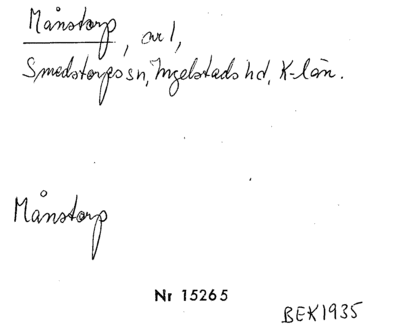 Månstorp, avl,
Smedstorps sn, Ingelstads hd, K-län.
Månstorp
Nr 15265
BEK1935